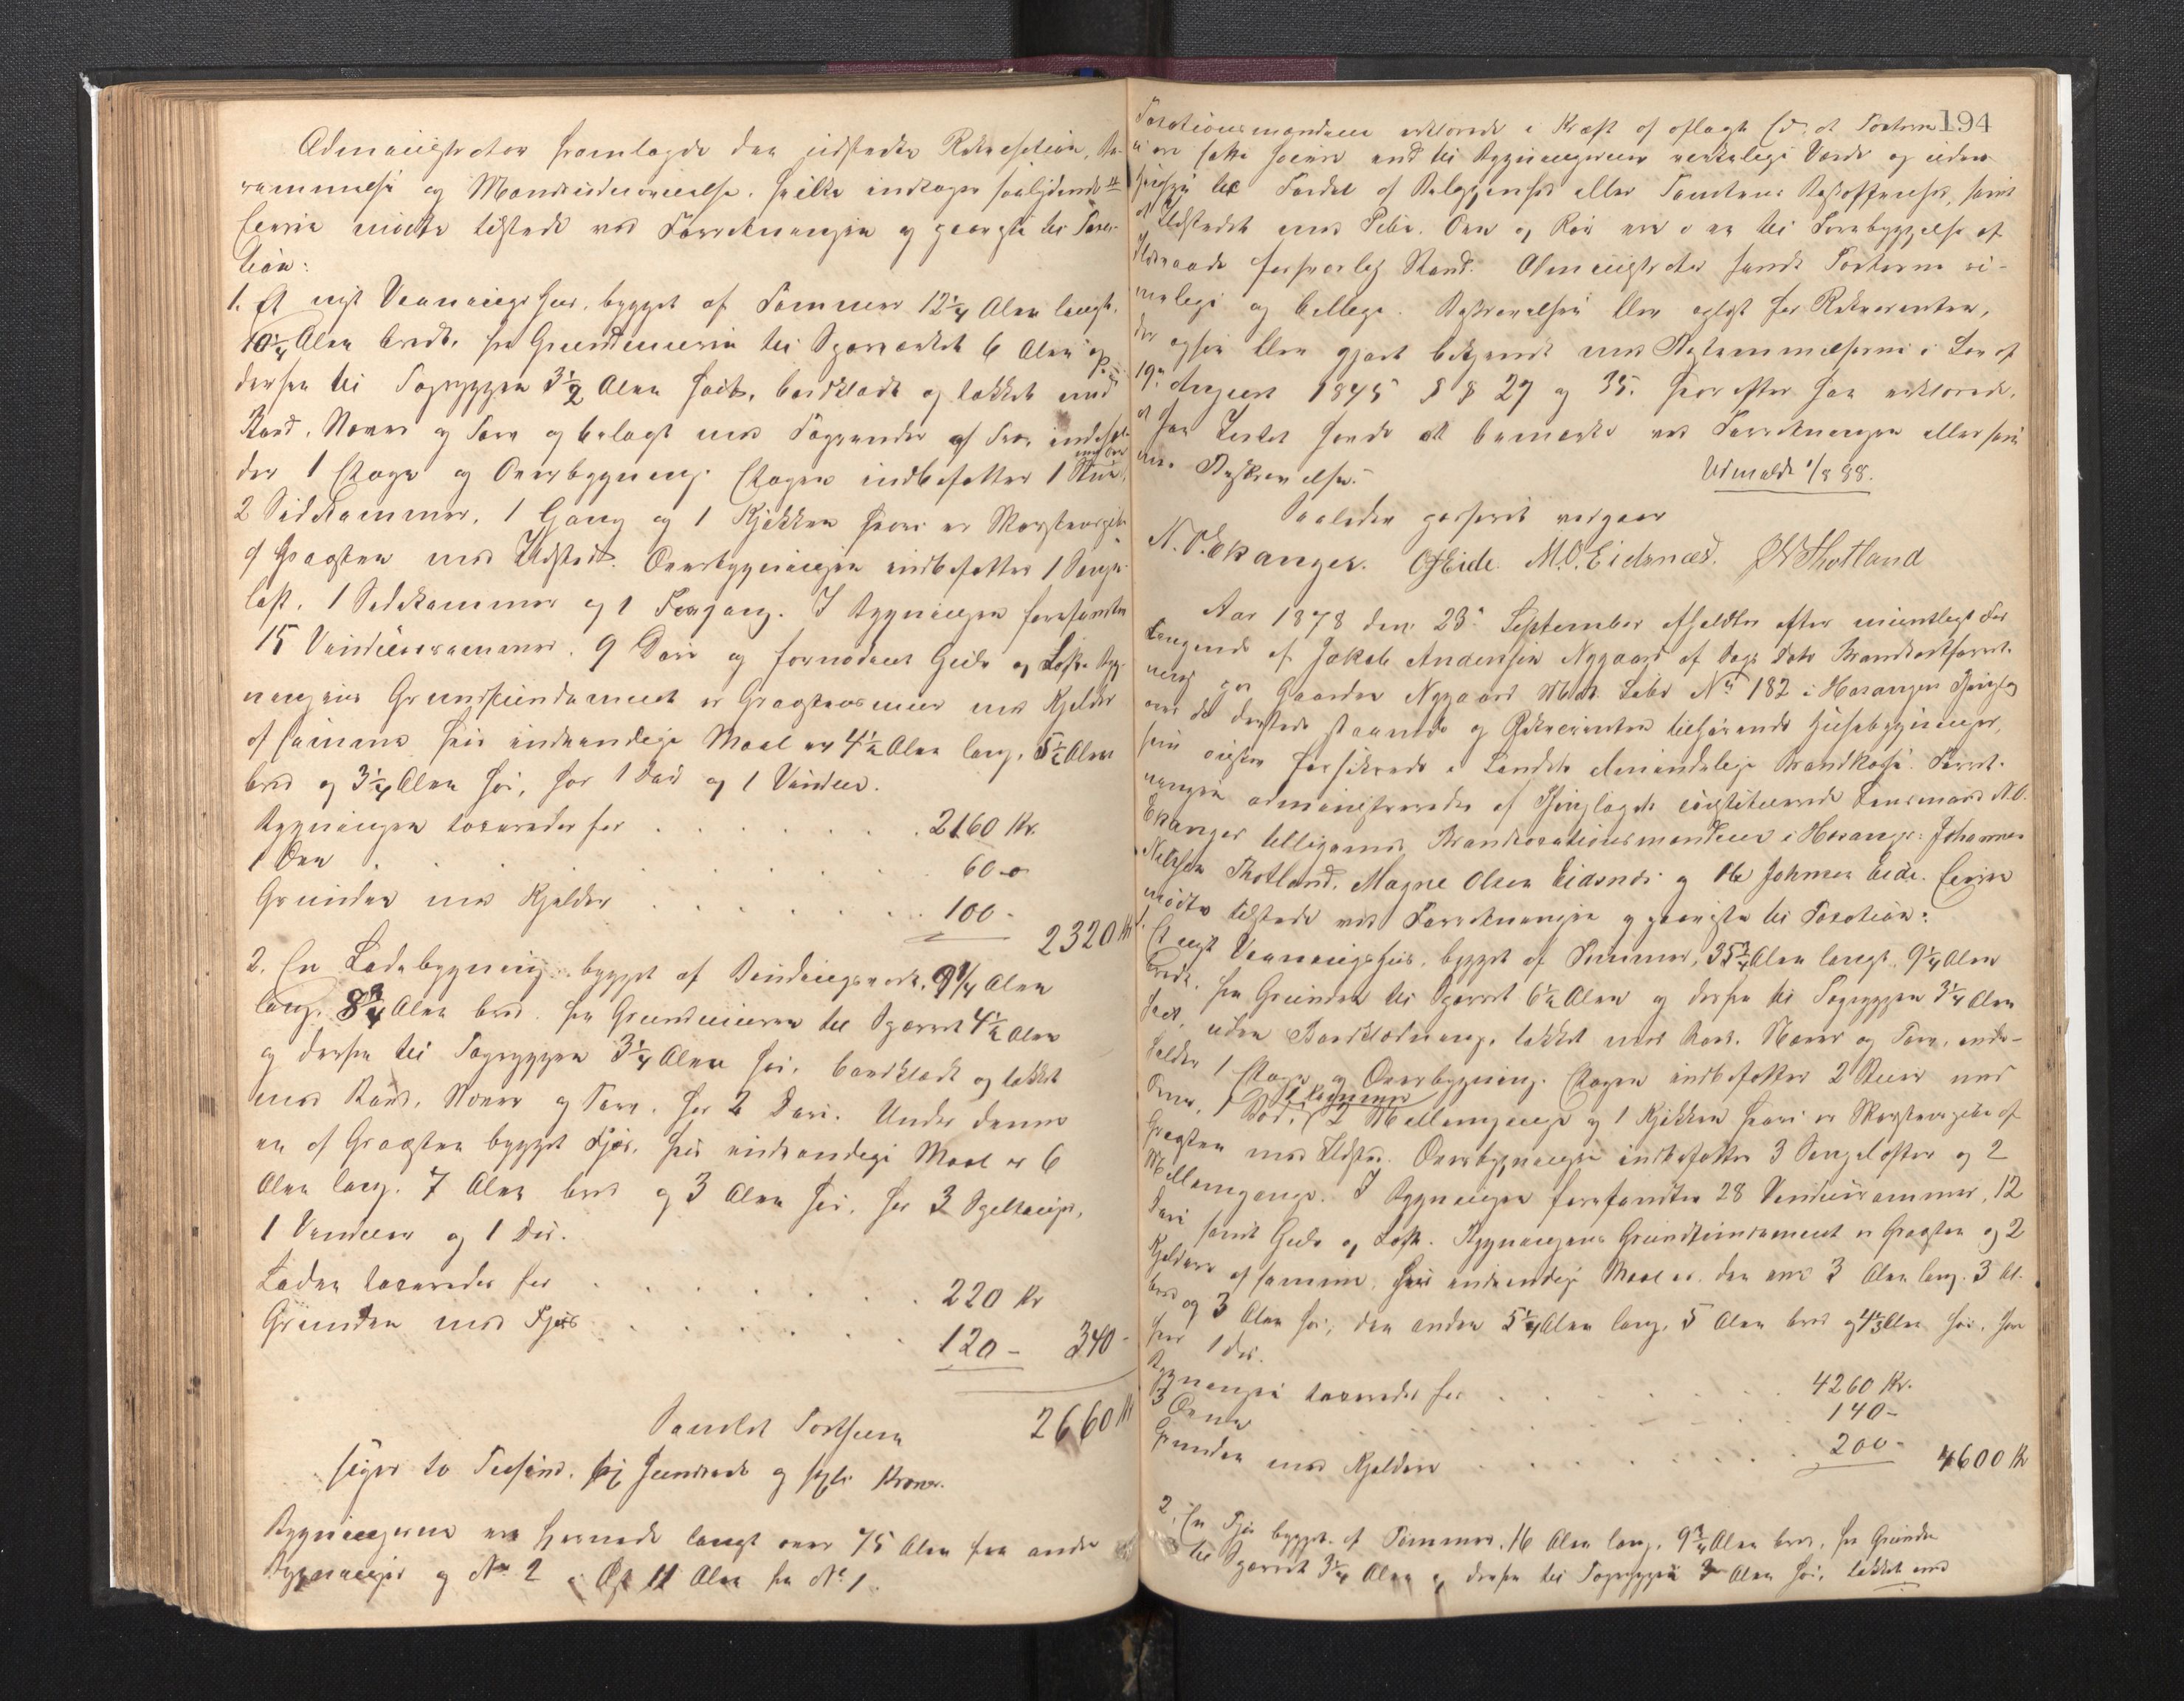 Administrator fremlagde den udstedte Rekvisition, Be-
rammelse og Mandsudnævnelse, hvilke indtages saalydende
Eieren mødte tilstede ved Forretningen og paaviste til Taxa-
tion:
1. Et nyt Vaaningshus, bygget af Tømmer 12 1/4 Alen langt,
10 1/4 Alen bredt, fra Grundmuren til Sparværket 6 Alen og
derfra til Tagryggen 3 1/2 Alen høit, bordklædt og tækket med
Bord, Næver og Torv og belagt med Tagrender af Træ indehol-
der 1 Etage og Overbygning. Etagen indbefatter 1 Stue med Ovn,
2 Sidekammer, 1 Gang og 1 Kjøkken hvori er Skorstenspibe
af Graasten med Ildsted. Overbygningen indbefatter 1 Senge-
loft, 1 Sidekammer og 1 Forgang. I Bygningen forefandtes
15 Vinduesrammer, 9 Døre og fornødent Gulv og Loft. Byg-
ningens Grundfundament er Graastensmuur med Kjelder
af samme, hvis indvendige Maal er 4 1/2 Alen lang, 5 1/2 Alen
bred og 3 1/4 Alen høi, har 1 Dør og 1 Vindue.
Bygningen taxeredes for . . . . . . . 2160 Kr.
1 Ovn . . . . . . . 60 -
Grunden med Kjelder . . . . . . . 100 -
2320 Kr
2. En Ladebygning bygget af Bindingsværk, 9 1/4 Alen
lang, 8 3/4 Alen bred, fra Grundmuren til Sparret 4 1/2 Alen
og derfra til Tagryggen 3 1/4 Alen høi, bordklædt og tækket
med Bord, Næver og Torv, har 2 Døre. Under denne
er af Graasten bygget Fjøs, hvis indvendige Maal er 6
Alen lang, 7 Alen bred og 3 Alen høi, har 3
1 Vindue og 1 Dør.
Laden taxeredes for . . . . . . . 220 Kr
Grunden med Fjøs . . . . . . . 120 - 340 -
Samlet Taxtsum 2660 Kr
siger to Tusind, sex Hundrede og sexti Kroner.
Bygningerne ere herved langt over 75 Alen fra andre
Bygninger og No 2 i Øst 11 Alen fra No 1.
194
Taxationsmændene erklærede i Kraft af aflagt Ed, at Taxterne
ere satte høiere end til Bygningernes virkelige Værdi og uden
Hensyn til Fordel af Beliggenhed eller Tomtens Beskaffenhed, samt
at Ildstedet med Pibe, Ovn og Rør ere i en til Forebyggelse af
Ildsvaade forsvarlig Stand. Administrator fandt Taxterne ri-
melige og billige. Beskrivelsen blev oplæst for Rekvirenten,
der ogsaa blev gjort bekjendt med Bestemmelserne i Lov af
19de August 1845 §§ 27 og 35. hvorefter han erklærede,
at han Intet havde at bemærke ved Forretningen eller den-
nes Beskrivelse.
Udmeldt 1/8 88.
Saaledes passeret vedgaaer
N. O. Ekanger. O J Eide. M. O. Eidsnæs. J N Thotland
Aar 1878 den 23de September afholdtes efter mundtligt For
langende af Jakob Anderssen Nygaard af Dags Dato Brandtaxtforret-
ning paa Gaarden Nygaard Matr. Løbe No 182 i Hosanger Thinglag
over de dersteds staaende og Rekvirenten tilhørende Husebygninger,
som ønskes forsikrede i Landets almindelige Brandkasse. Forret-
ningen administreredes af Thinglagets constituerede Lensmand N. O.
Ekanger tilligemed Brandtaxationsmændene i Hosanger: Johannes
Nilssen Thotland, Magne Olsen Eidsnæs og Ole Johnsen Eide. Eieren
mødte tilstede ved Forretningen og paaviste til Taxation:
1. Et nyt Vaaningshus, bygget af Tømmer, 35 3/4 Alen langt, 9 1/4 Alen
bredt, fra Grunden til Sparret 6 1/2 Alen og derfra til Tagryggen 3 1/4 Alen
høit, uden Bordklædning, tækket med Bord, Næver og Torv, inde-
holder 1 Etage og Overbygning. Etagen indbefatter 2 Stuer med
Ovne, 1 Bod, 2 Kammer, 2 Mellemgange og 1 Kjøkken hvori er Skorstenspibe af
Graasten med Ildsted. Overbygningen indbefatter 3 Sengelofter og 2
Mellemgange. I Bygningen forefandtes 28 Vinduesrammer, 12
Døre samt Gulv og Loft. Bygningens Grundfundament er Graasten og 2
Kjeldere af samme, hvis indvendige Maal er den ene 3 Alen lang, 3 Al.
bred og 3 Alen høi, den anden 5 1/4 Alen lang, 5 Alen bred og 4 1/3 Alen høi, hver
har 1 Dør.
Bygningen taxeredes for . . . . . . . 4260 Kr.
3 Ovne . . . . . . . 140 -
Grunden med Kjeldere . . . . . . . 200 - 4600 Kr
2. En Fjøs bygget af Tømmer, 16 Alen lang, 9 3/4 Alen bred, fra Grunden
til Sparret 3 1/4 Alen og derfra til Tagryggen 3 Alen høi, tækket med